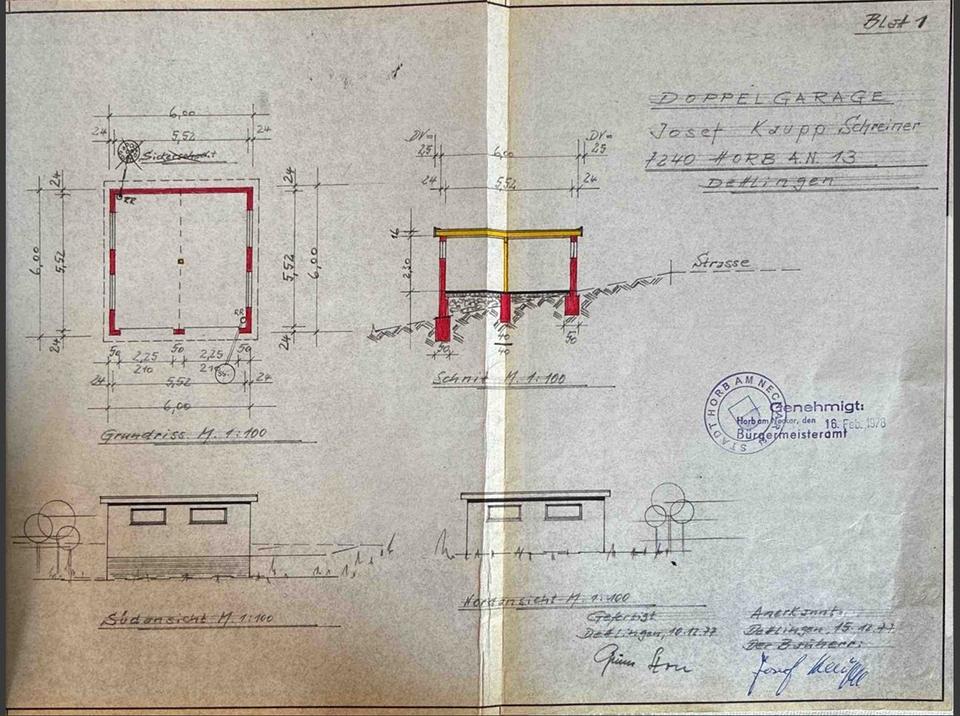 Blat 1
DOPPELGARAGE
Josef Kaupp Schreiner
7240 HORB A.N. 13
Dettlingen
6,00
24 5,52 24
Sickerschacht
RR
24
6,00
5,52
24
24
5,52
6,00
24
RR
50 50 50
2,25 2,25
210 210
24 5,52 24
6,00
Grundriss M. 1:100
DV= DV=
25 6,00 25
24 5,52 24
16
2,30
Strasse
50 40 50
40
Schnit M. 1:100
STADT HORB AM NECKAR
Genehmigt:
Horb am Neckar, den 16. Feb. 1978
Bürgermeisteramt
Südansicht M. 1:100
Nordansicht M. 1:100
Gefertigt
Dettlingen, 10.12.77
Anerkannt:
Dettlingen, 15.12.77
Der Bauherr:
Josef